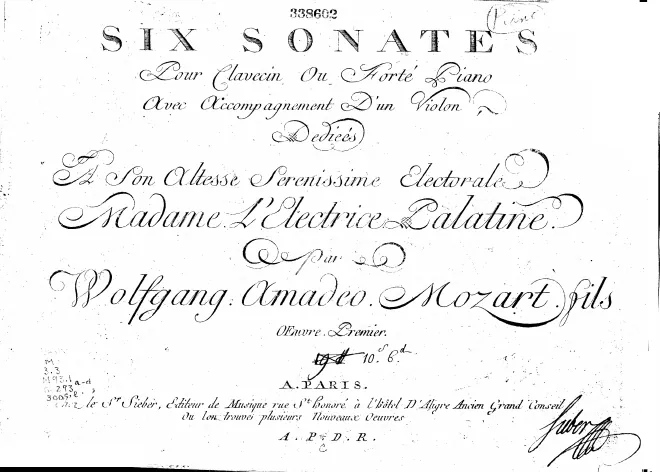 338602
Piano
SIX SONATES
Pour Clavecin Ou Forté Piano
Avec Accompagnement D'un Violon
Dedieés
A Son Altesse Serenissime Electorale
Madame L'Electrice Palatine.
par
Wolfgang. Amadeo. Mozart. fils
OEuvre. Premier.
10.s 6.d
A. PARIS.
le Sr Sieber, Editeur de Musique rue St Honoré à l'hôtel D'Aligre Ancien Grand Conseil
Ou l'on trouve plusieurs Nouveaux Oeuvres
A. P. D. R.
Sieber